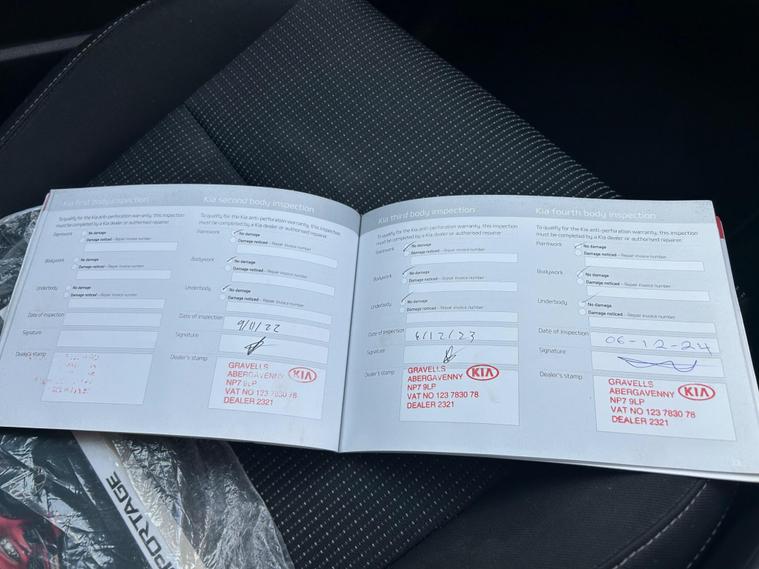 Kia first body inspection
To qualify for the Kia anti-perforation warranty, this inspection
must be completed by a Kia dealer or authorised repairer.
Paintwork
No damage
Damage noticed - Repair invoice number
Bodywork
No damage
Damage noticed - Repair invoice number
Underbody
No damage
Damage noticed - Repair invoice number
Date of inspection
Signature
Dealer's stamp
Kia second body inspection
To qualify for the Kia anti-perforation warranty, this inspection
must be completed by a Kia dealer or authorised repairer.
Paintwork
No damage
Damage noticed - Repair invoice number
Bodywork
No damage
Damage noticed - Repair invoice number
Underbody
No damage
Damage noticed - Repair invoice number
Date of inspection
9/11/22
Signature
Dealer's stamp
GRAVELLS
ABERGAVENNY KIA
NP7 9LP
VAT NO 123 7830 78
DEALER 2321
Kia third body inspection
To qualify for the Kia anti-perforation warranty, this inspection
must be completed by a Kia dealer or authorised repairer.
Paintwork
No damage
Damage noticed - Repair invoice number
Bodywork
No damage
Damage noticed - Repair invoice number
Underbody
No damage
Damage noticed - Repair invoice number
Date of inspection
6/12/23
Signature
Dealer's stamp
GRAVELLS
ABERGAVENNY KIA
NP7 9LP
VAT NO 123 7830 78
DEALER 2321
Kia fourth body inspection
To qualify for the Kia anti-perforation warranty, this inspection
must be completed by a Kia dealer or authorised repairer.
Paintwork
No damage
Damage noticed - Repair invoice number
Bodywork
No damage
Damage noticed - Repair invoice number
Underbody
No damage
Damage noticed - Repair invoice number
Date of inspection
06-12-24
Signature
Dealer's stamp
GRAVELLS
ABERGAVENNY KIA
NP7 9LP
VAT NO 123 7830 78
DEALER 2321
PORTAGE